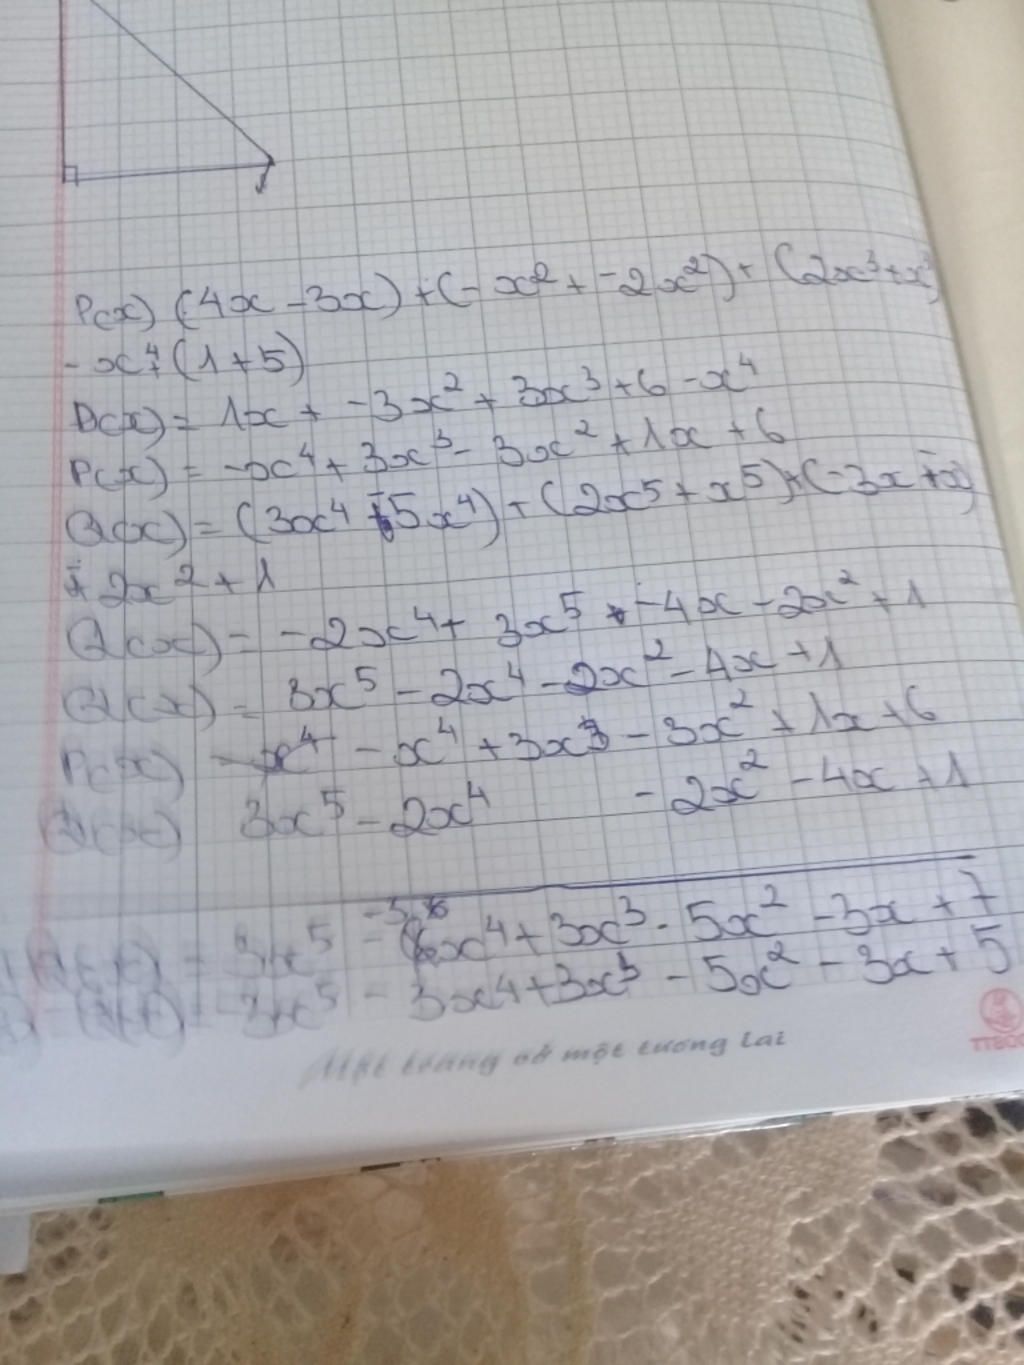 P(x) (4x - 3x) + (- x² + -2x²) + (2x³ + x³)
- x⁴ + (1 + 5)
P(x) = 1x + -3x² + 3x³ + 6 - x⁴
P(x) = -x⁴ + 3x³ - 3x² + 1x + 6
Q(x) = (3x⁴ - 5x⁴) + (2x⁵ + x⁵) + (-3x - x)
- 2x² + 1
Q(x) = -2x⁴ + 3x⁵ - 4x - 2x² + 1
Q(x) = 3x⁵ - 2x⁴ - 2x² - 4x + 1
P(x) - x⁴ + 3x³ - 3x² + 1x + 6
Q(x) 3x⁵ - 2x⁴ - 2x² - 4x + 1
Q(x) = 3x⁵ - x⁴ + 3x³ - 5x² - 3x + 7
- Q(x) = 3x⁵ - 3x⁴ + 3x³ - 5x² - 3x + 5
Một trang vở một tương lai